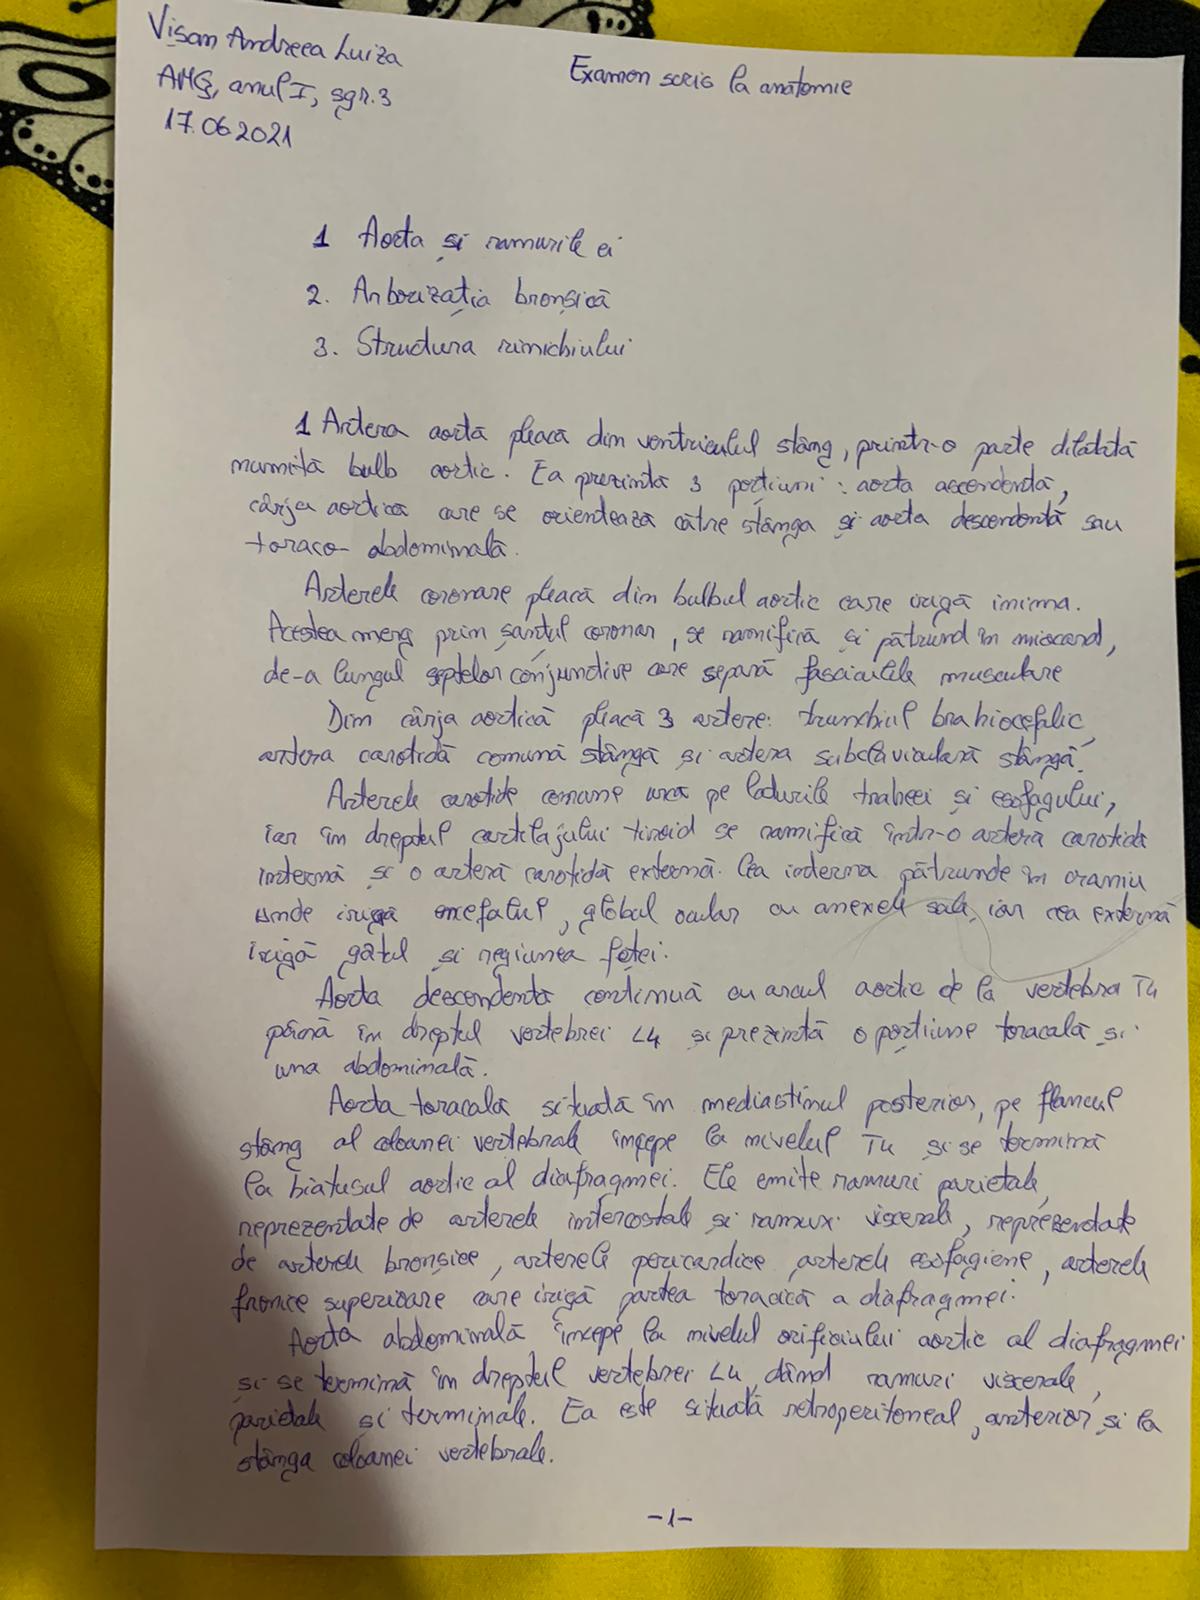 Vișan Andreea Luiza
AMG, anul I, sgr.3
17.06.2021
Examen scris la anatomie
1 Aorta și ramurile ei
2. Arborizația bronșică
3. Structura rinichiului
1 Artera aortă pleacă din ventriculul stâng, printr-o parte dilatată
numită bulb aortic. Ea prezintă 3 porțiuni: aorta ascendentă,
cârja aortică care se orientează către stânga și aorta descendentă sau
toraco-abdominală.
Arterele coronare pleacă din bulbul aortic care irigă inima.
Acestea merg prin șanțul coronar, se ramifică și pătrund în miocard,
de-a lungul septelor conjunctive care separă fasciculele musculare
Din cârja aortică pleacă 3 artere: trunchiul brahiocefalic,
artera carotidă comună stângă și artera subclaviculară stângă.
Arterele carotide comune urcă pe laturile traheei și esofagului,
iar în dreptul cartilajului tiroid se ramifică într-o arteră carotidă
internă și o arteră carotidă externă. Cea internă pătrunde în craniu
unde irigă encefalul, globul ocular cu anexele sale, iar cea externă
irigă gâtul și regiunea feței.
Aorta descendentă continuă cu arcul aortic de la vertebra T4
până în dreptul vertebrei L4 și prezintă o porțiune toracală și
una abdominală.
Aorta toracală situată în mediastinul posterior, pe flancul
stâng al coloanei vertebrale începe la nivelul T4 și se termină
la hiatusul aortic al diafragmei. Ele emite ramuri parietale,
reprezentate de arterele intercostale și ramuri viscerale, reprezentate
de arterele bronșice, arterele pericardice, arterele esofagiene, arterele
frenice superioare care irigă partea toracică a diafragmei.
Aorta abdominală începe la nivelul orificiului aortic al diafragmei
și se termină în dreptul vertebrei L4, dând ramuri viscerale,
parietale și terminale. Ea este situată retroperitoneal, anterior și la
stânga coloanei vertebrale.
-1-